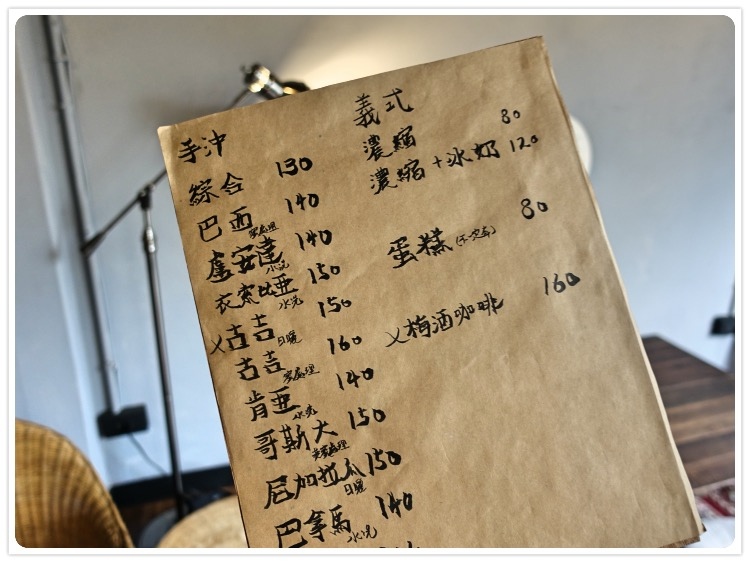 手沖
綜合 130
巴西 蜜處理 140
盧安達 水洗 140
衣索比亞 水洗 150
X古吉 日曬 150
古吉 蜜處理 160
肯亞 水洗 140
哥斯大 黃蜜處理 150
尼加拉瓜 日曬 150
巴拿馬 水洗 140
義式
濃縮 80
濃縮+冰奶 120
蛋糕(不定季) 80
X梅酒咖啡 160